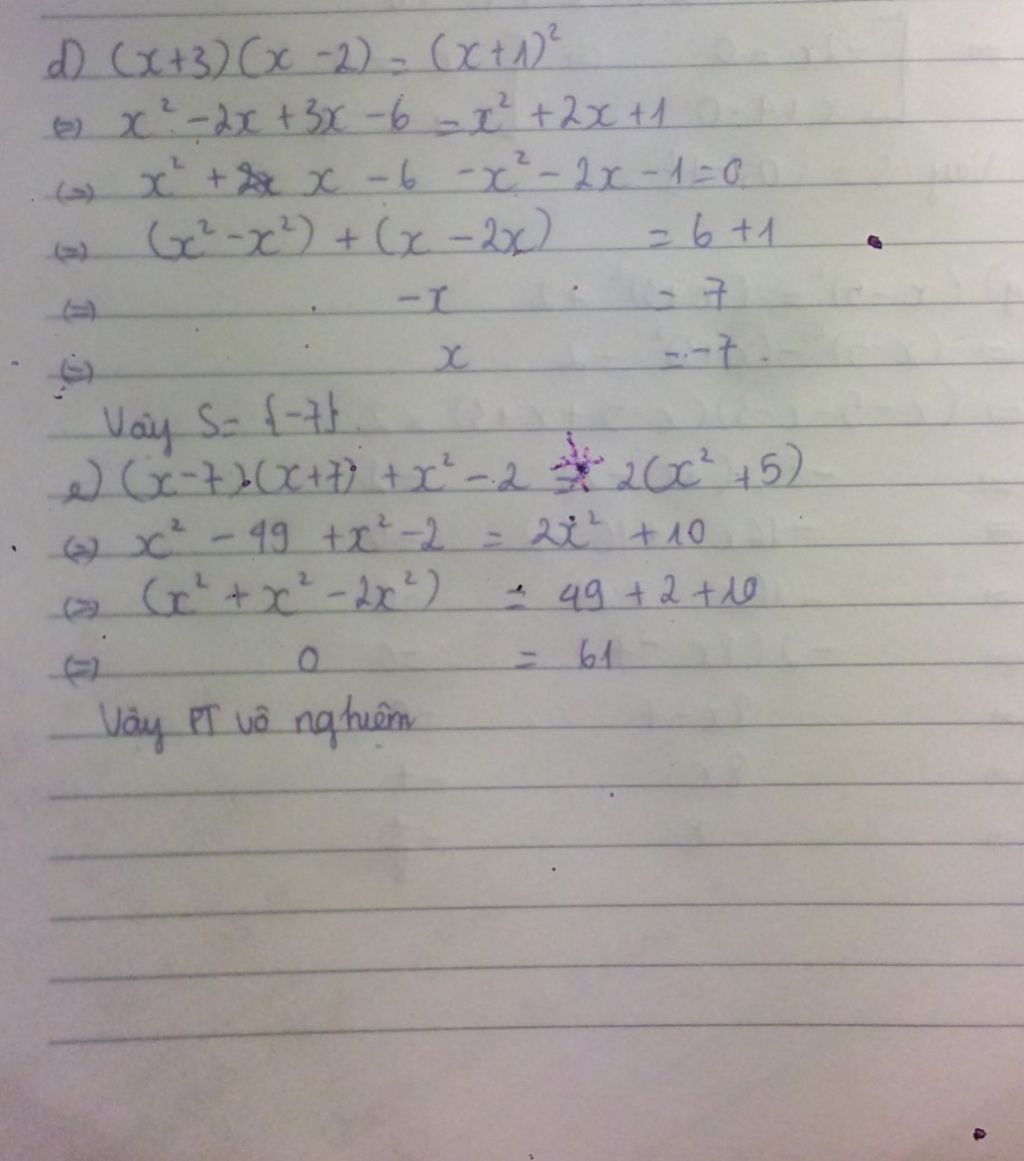 d) (x+3)(x-2) = (x+1)²
(=) x² - 2x + 3x - 6 = x² + 2x + 1
(=) x² + x - 6 - x² - 2x - 1 = 0
(=) (x² - x²) + (x - 2x) = 6 + 1
(=) -x = 7
(=) x = -7.
Vậy S = {-7}.
e) (x-7).(x+7) + x² - 2 = 2(x² + 5)
(=) x² - 49 + x² - 2 = 2x² + 10
(=) (x² + x² - 2x²) = 49 + 2 + 10
(=) 0 = 61
Vậy PT vô nghiệm